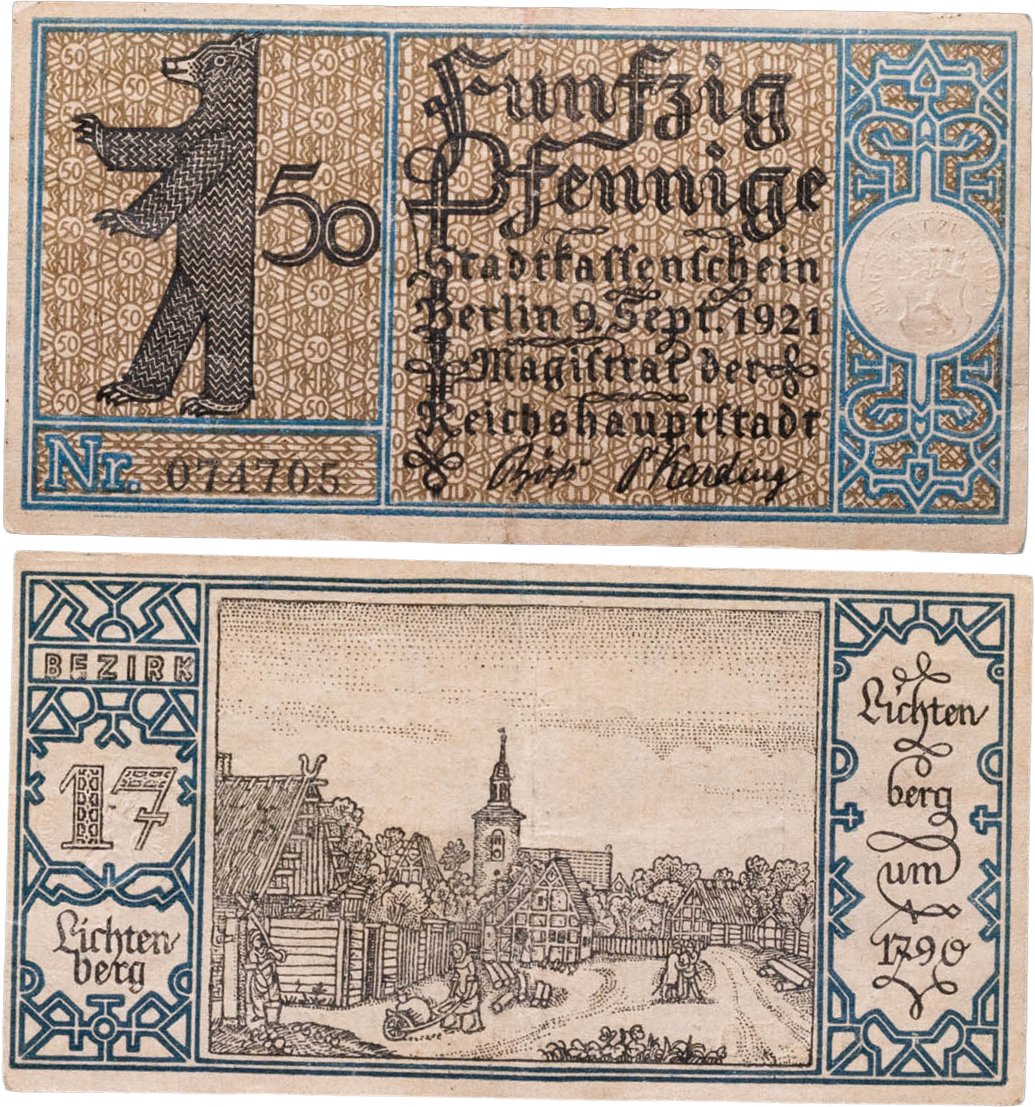 50
Funfzig
Pfennige
Stadtkassenschein
Berlin 9. Sept. 1921
Magistrat der
Reichshauptstadt
Nr. 074705
BEZIRK
17
Lichten
berg
Lichten
berg
um
1790